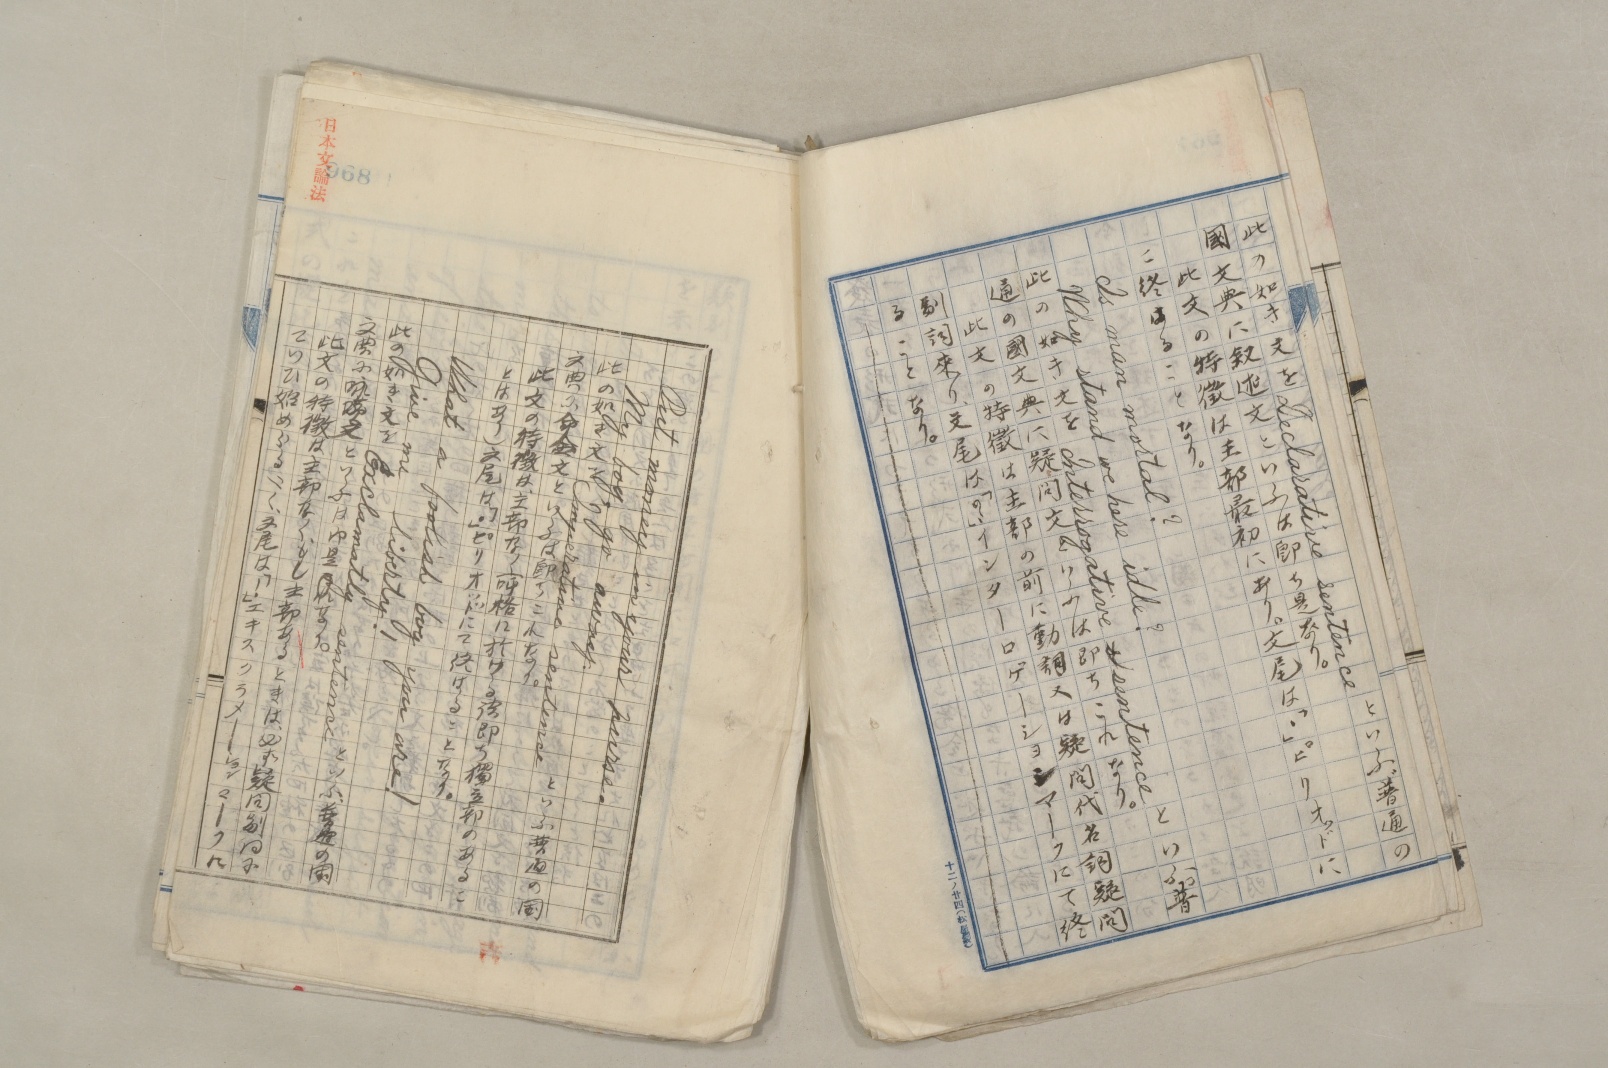 此の如き文を Declarative sentence といふ普通の
國文典に敍述文といふは即ち是なり。
此文の特徴は主部最初にあり。文尾は「.」ピリオッドに
て終はることなり。
Is man mortal?
Why stand we here idle?
此の如き文を Interrogative sentence といふ普
通の國文典に疑問文といふは即ちこれなり。
此文の特徴は主部の前に動詞又は疑問代名詞疑問
副詞來り、文尾は「?」インターロゲーションマークにて終
ることなり。
十二ノ廿四
日本文論法
968
Put money in your purse.
My boy go away.
此の如き文を Imperative sentence といふ普通の國
文典に命令文といふは即ちこれなり。
此文の特徴は主部なく(呼格に於ける語即ち獨立部のあるこ
とはあり)文尾は「.」ピリオッドにて終はることなり。
What a foolish boy you are!
Give me liberty!
此の如き文を Exclamatory sentence といふ普通の國
文典に
此文の特徴は主部なく、もし主部あるときは必ず疑問副詞
にて
いひ始めらる。文尾は「!」エキスクラメーションマークに